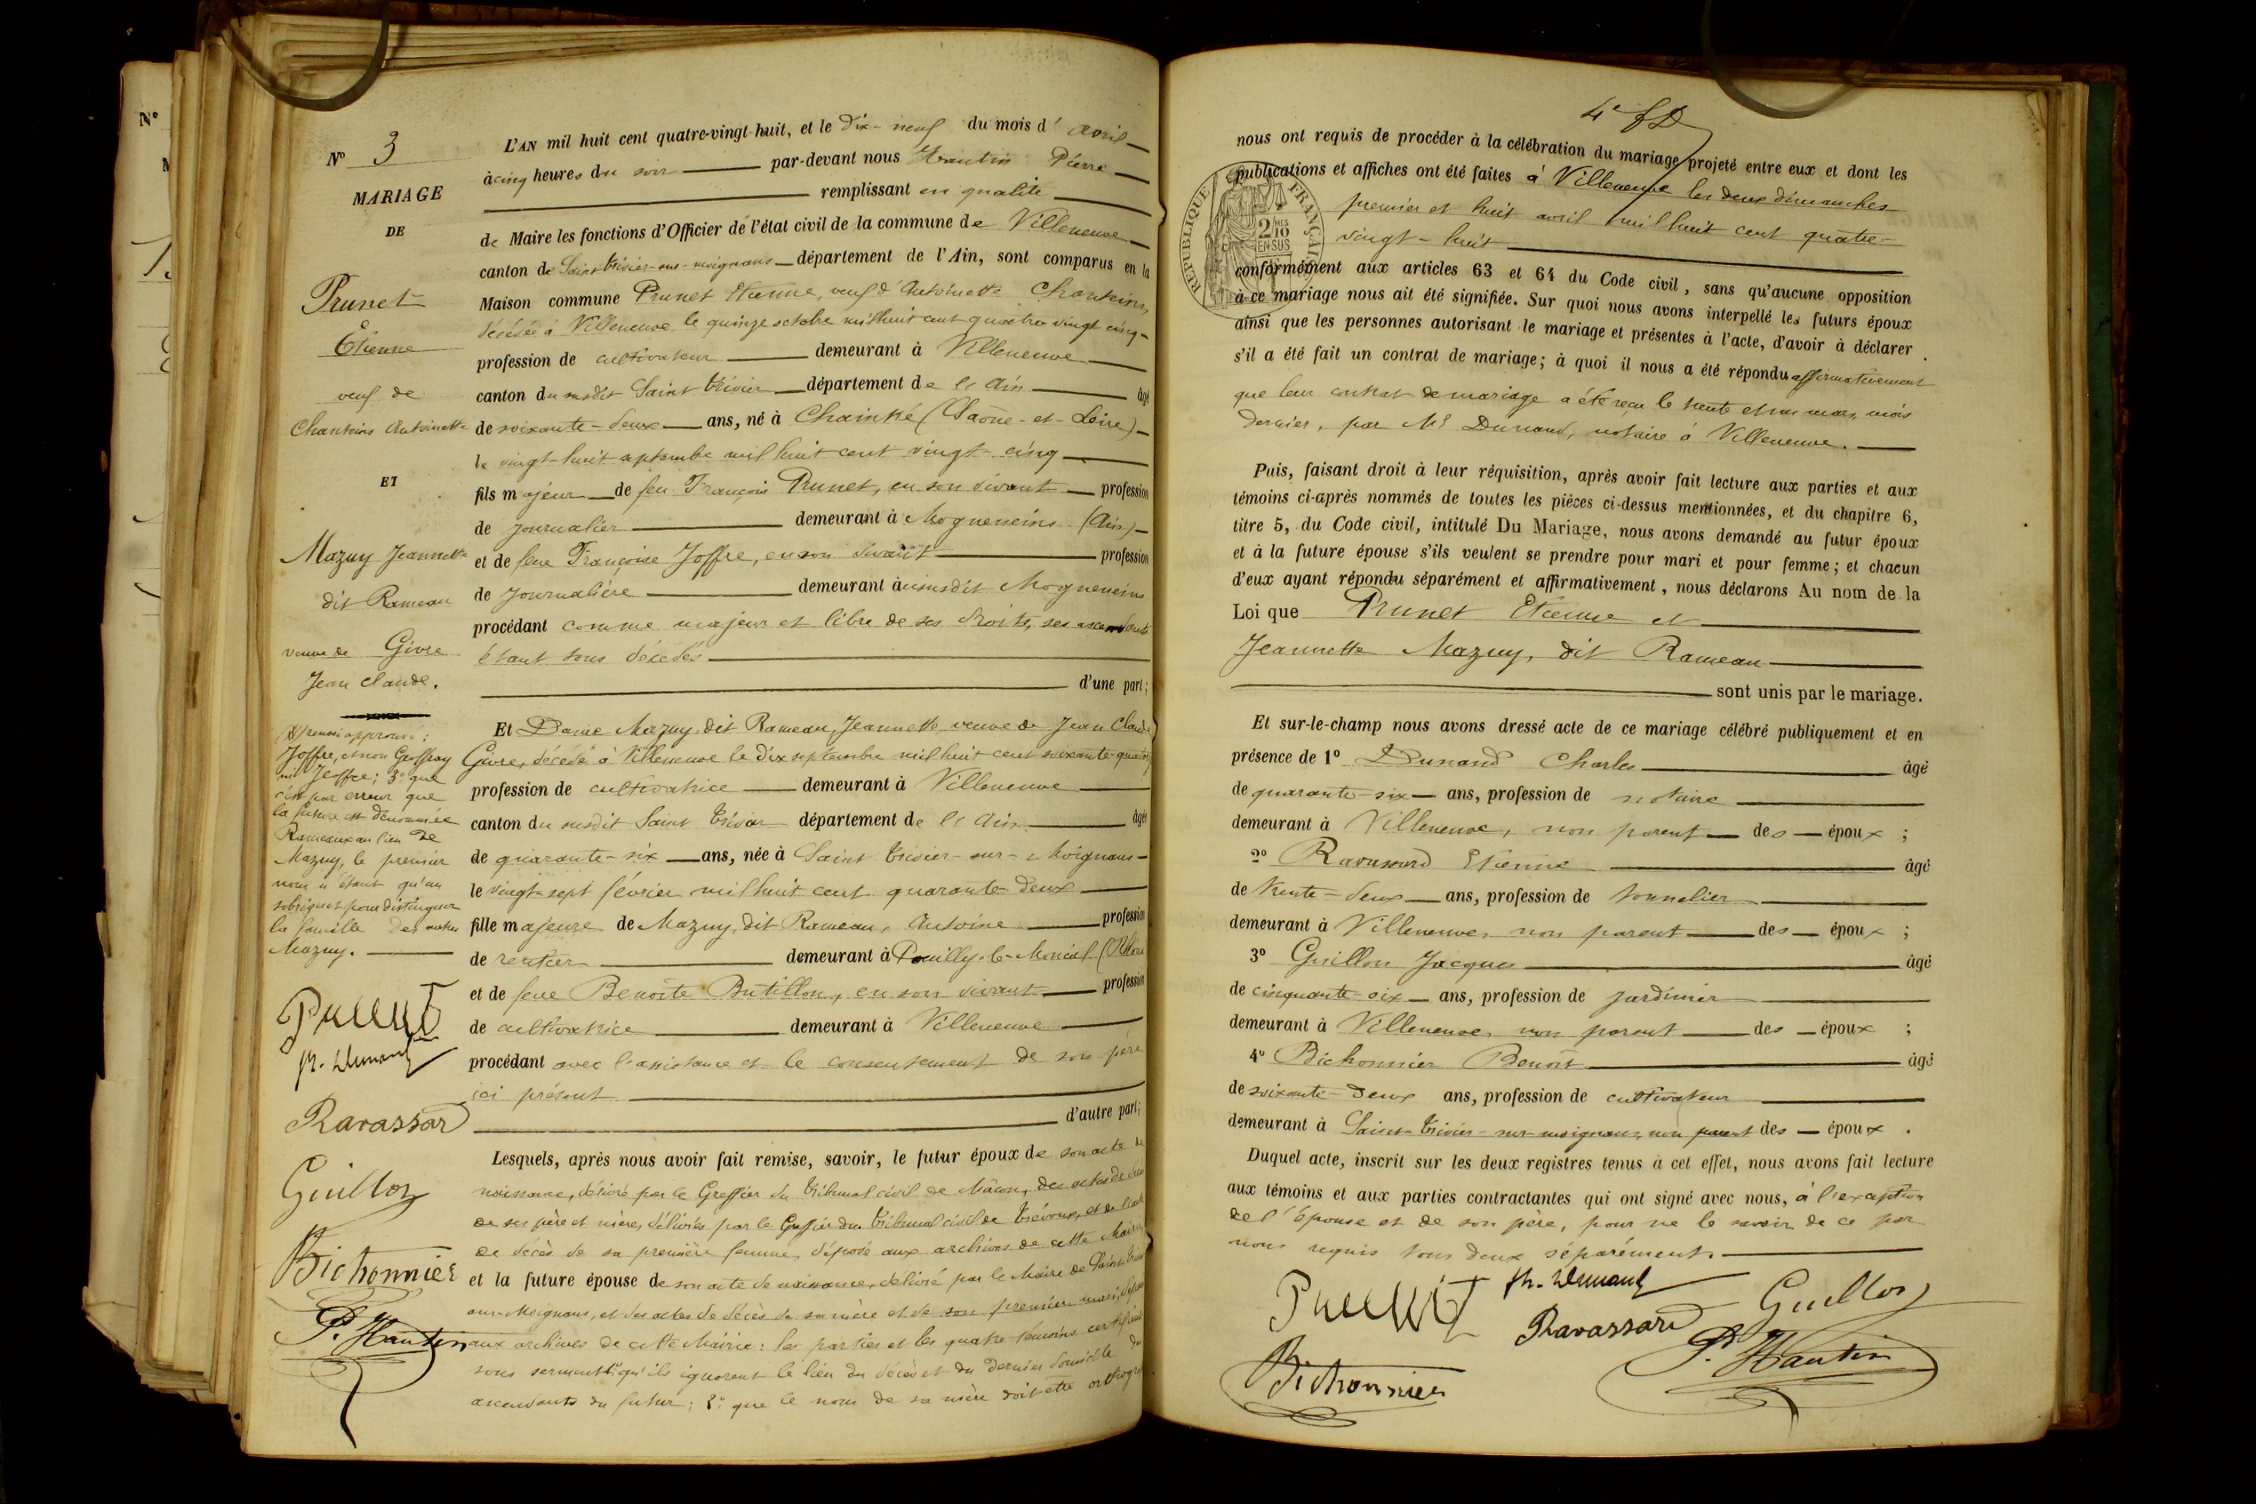 N°
N° 3
MARIAGE
DE
Prunet
Etienne
veuf de
Chanteins Antoinette
ET
Mazuy Jeannette
dit Rameau
veuve de Givre
Jean Claude.
renvoi approuvé :
Joffre, et non Geoffray
ni Jeoffre ; 3° que
c'est par erreur que
la future est dénommée
Rameaux au lieu de
Mazuy, le premier
nom n'étant qu'un
sobriquet pour distinguer
la famille des autres
Mazuy.
Prunet
Ch. Dunand
Ravassard
Guillon
Bichonnier
P. Hautin
L'AN mil huit cent quatre-vingt-huit, et le dix-neuf du mois d' avril
à cinq heures du soir par-devant nous Hautin Pierre
remplissant en qualité
de Maire les fonctions d'Officier de l'état civil de la commune de Villeneuve
canton de Saint-Trivier-sur-Moignans département de l'Ain, sont comparus en la
Maison commune Prunet Etienne, veuf d'Antoinette Chanteins,
décédée à Villeneuve le quinze octobre mil huit cent quatre vingt cinq
profession de cultivateur demeurant à Villeneuve
canton du susdit Saint Trivier département de l'Ain âgé
de soixante-deux ans, né à Chaintré (Saône-et-Loire)
le vingt-huit septembre mil huit cent vingt-cinq
fils majeur de feu François Prunet, en son vivant profession
de journalier demeurant à Mogneneins (Ain)
et de feue Françoise Joffre, en son vivant profession
de journalière demeurant au susdit Mogneneins
procédant comme majeur et libre de ses droits, ses ascendants
étant tous décédés
d'une part ;
Et Dame Mazuy dit Rameau, Jeannette veuve de Jean Claude
Givre, décédé à Villeneuve le dix septembre mil huit cent soixante-quatorze
profession de cultivatrice demeurant à Villeneuve
canton du susdit Saint Trivier département de l'Ain âgée
de quarante-six ans, née à Saint Trivier-sur-Moignans
le vingt-sept février mil huit cent quarante-deux
fille majeure de Mazuy, dit Rameau, Antoine profession
de rentier demeurant à Pouilly-le-Monial (Rhône
et de feue Benoîte Butillon, en son vivant profession
de cultivatrice demeurant à Villeneuve
procédant avec l'assistance et le consentement de son père
ici présent
d'autre part ;
Lesquels, après nous avoir fait remise, savoir, le futur époux de son acte de
naissance, délivré par le Greffier du tribunal civil de Mâcon, des actes de décès
de ses père et mère, délivrés par le Greffier du tribunal civil de Trévoux, et de l'acte
de décès de sa première femme, déposé aux archives de cette Mairie
et la future épouse de son acte de naissance, délivré par le Maire de Saint-Trivier
sur-Moignans, et des actes de décès de sa mère et de son premier mari, déposés
aux archives de cette Mairie : les parties et les quatre témoins certifiant
sous serment 1° qu'ils ignorent le lieu du décès et du dernier domicile des
ascendants du futur ; 2° que le nom de sa mère doit être orthographié
nous ont requis de procéder à la célébration du mariage projeté entre eux et dont les
publications et affiches ont été faites à Villeneuve les deux dimanches
premier et huit avril mil huit cent quatre-
vingt-huit
RÉPUBLIQUE FRANÇAISE
2/10
EN SUS
conformément aux articles 63 et 64 du Code civil, sans qu'aucune opposition
à ce mariage nous ait été signifiée. Sur quoi nous avons interpellé les futurs époux
ainsi que les personnes autorisant le mariage et présentes à l'acte, d'avoir à déclarer
s'il a été fait un contrat de mariage ; à quoi il nous a été répondu affirmativement
que leur contrat de mariage a été reçu le trente et un mars, mois
dernier, par Me Dunand, notaire à Villeneuve.
Puis, faisant droit à leur réquisition, après avoir fait lecture aux parties et aux
témoins ci-après nommés de toutes les pièces ci-dessus mentionnées, et du chapitre 6,
titre 5, du Code civil, intitulé Du Mariage, nous avons demandé au futur époux
et à la future épouse s'ils veulent se prendre pour mari et pour femme ; et chacun
d'eux ayant répondu séparément et affirmativement, nous déclarons Au nom de la
Loi que Prunet Etienne et
Jeannette Mazuy, dit Rameau
sont unis par le mariage.
Et sur-le-champ nous avons dressé acte de ce mariage célébré publiquement et en
présence de 1° Dunand Charles âgé
de quarante-six ans, profession de notaire
demeurant à Villeneuve, non parent des époux ;
2° Ravassard Etienne âgé
de trente-deux ans, profession de tonnelier
demeurant à Villeneuve, non parent des époux ;
3° Guillon Jacques âgé
de cinquante-six ans, profession de jardinier
demeurant à Villeneuve, non parent des époux ;
4° Bichonnier Benoît âgé
de soixante-deux ans, profession de cultivateur
demeurant à Saint-Trivier-sur-Moignans, non parent des époux .
Duquel acte, inscrit sur les deux registres tenus à cet effet, nous avons fait lecture
aux témoins et aux parties contractantes qui ont signé avec nous, à l'exception
de l'épouse et de son père, pour ne le savoir de ce par
nous requis tous deux séparément.
Prunet
Ch. Dunand
Guillon
Ravassard
P. Hautin
Bichonnier